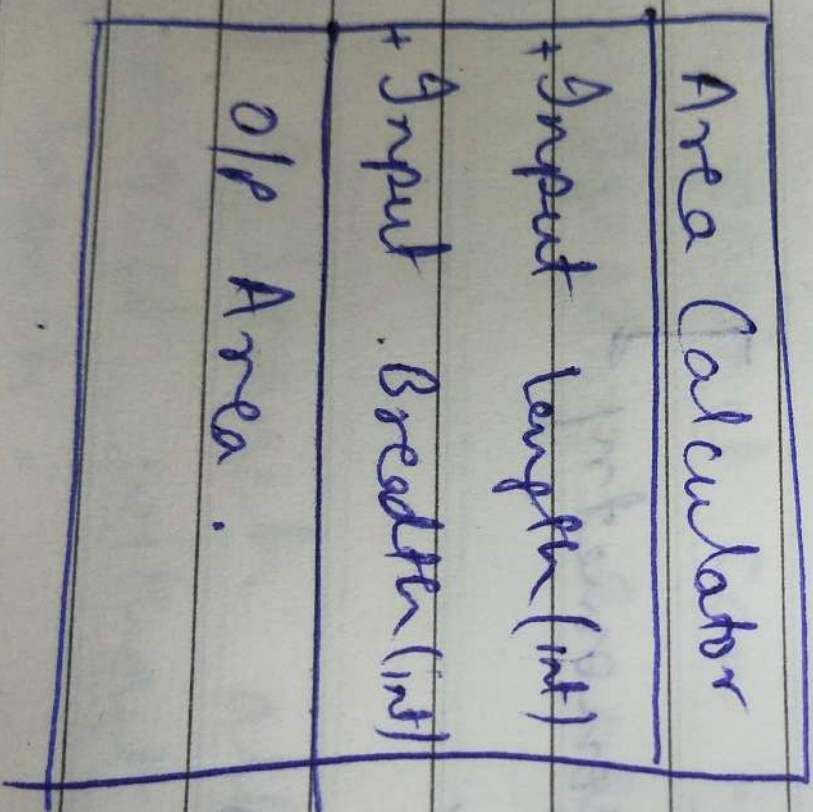 Area Calculator
+ Input length (int)
+ Input Breadth (int)
O/P Area.